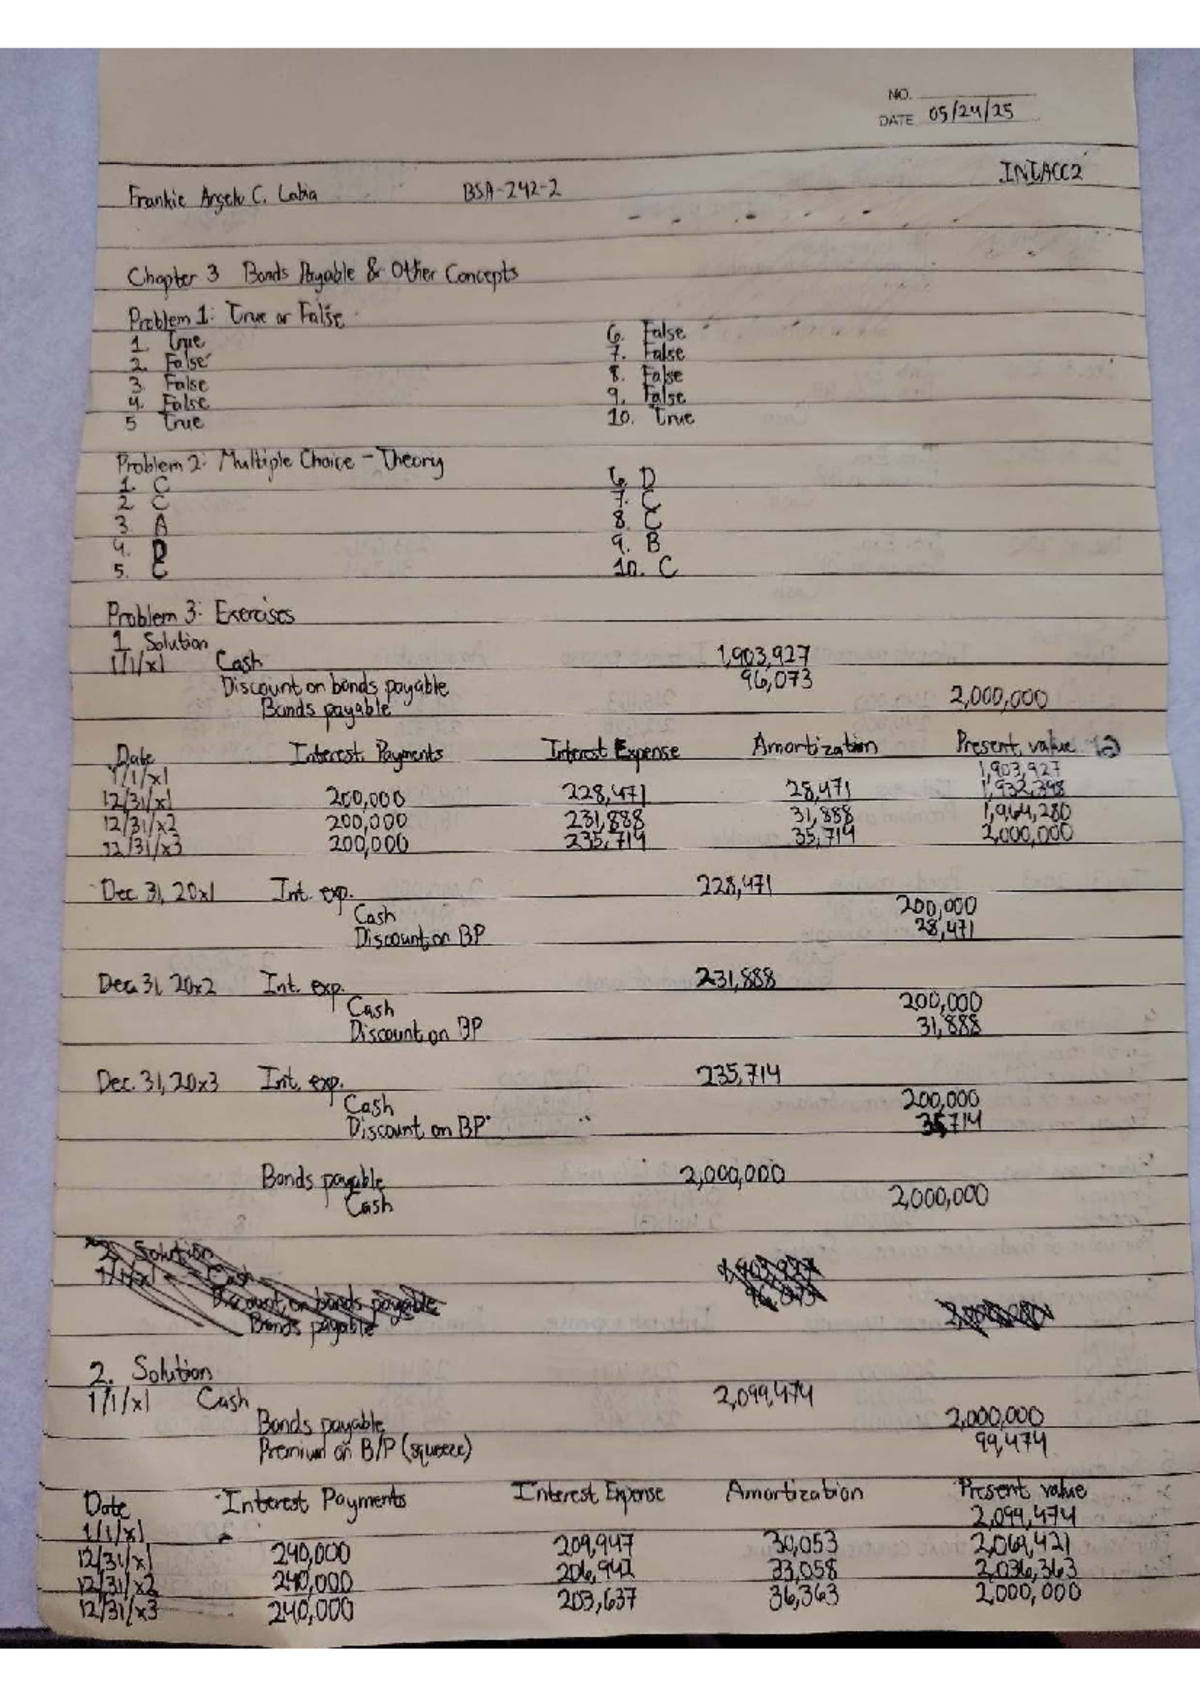 NO.
DATE 05/24/25
INTACC2
Frankie Angelo C. Labia BSA-242-2
Chapter 3 Bonds Payable & Other Concepts
Problem 1: True or False
1. True 6. False
2. False 7. False
3. False 8. False
4. False 9. False
5 True 10. True
Problem 2: Multiple Choice - Theory
1. C 6. D
2 C 7. C
3. A 8. C
4. D 9. B
5. C 10. C
Problem 3: Exercises
1. Solution
1/1/x1 Cash 1,903,927
Discount on bonds payable 96,073
Bonds payable 2,000,000
Date Interest Payments Interest Expense Amortization Present value
1/1/x1 1,903,927
12/31/x1 200,000 228,471 28,471 1,932,398
12/31/x2 200,000 231,888 31,888 1,964,280
12/31/x3 200,000 235,714 35,714 2,000,000
Dec. 31, 20x1 Int. exp. 228,471
Cash 200,000
Discount on BP 28,471
Dec. 31, 20x2 Int. exp. 231,888
Cash 200,000
Discount on BP 31,888
Dec. 31, 20x3 Int. exp. 235,714
Cash 200,000
Discount on BP 35,714
Bonds payable 2,000,000
Cash 2,000,000
2. Solution
1/1/x1 Cash 1,903,927
Discount on bonds payable
Bonds payable 2,000,000
2. Solution
1/1/x1 Cash 2,099,474
Bonds payable 2,000,000
Premium on B/P (squeeze) 99,474
Date Interest Payments Interest Expense Amortization Present value
1/1/x1 2,099,474
12/31/x1 240,000 209,947 30,053 2,069,421
12/31/x2 240,000 206,942 33,058 2,036,363
12/31/x3 240,000 203,637 36,363 2,000,000